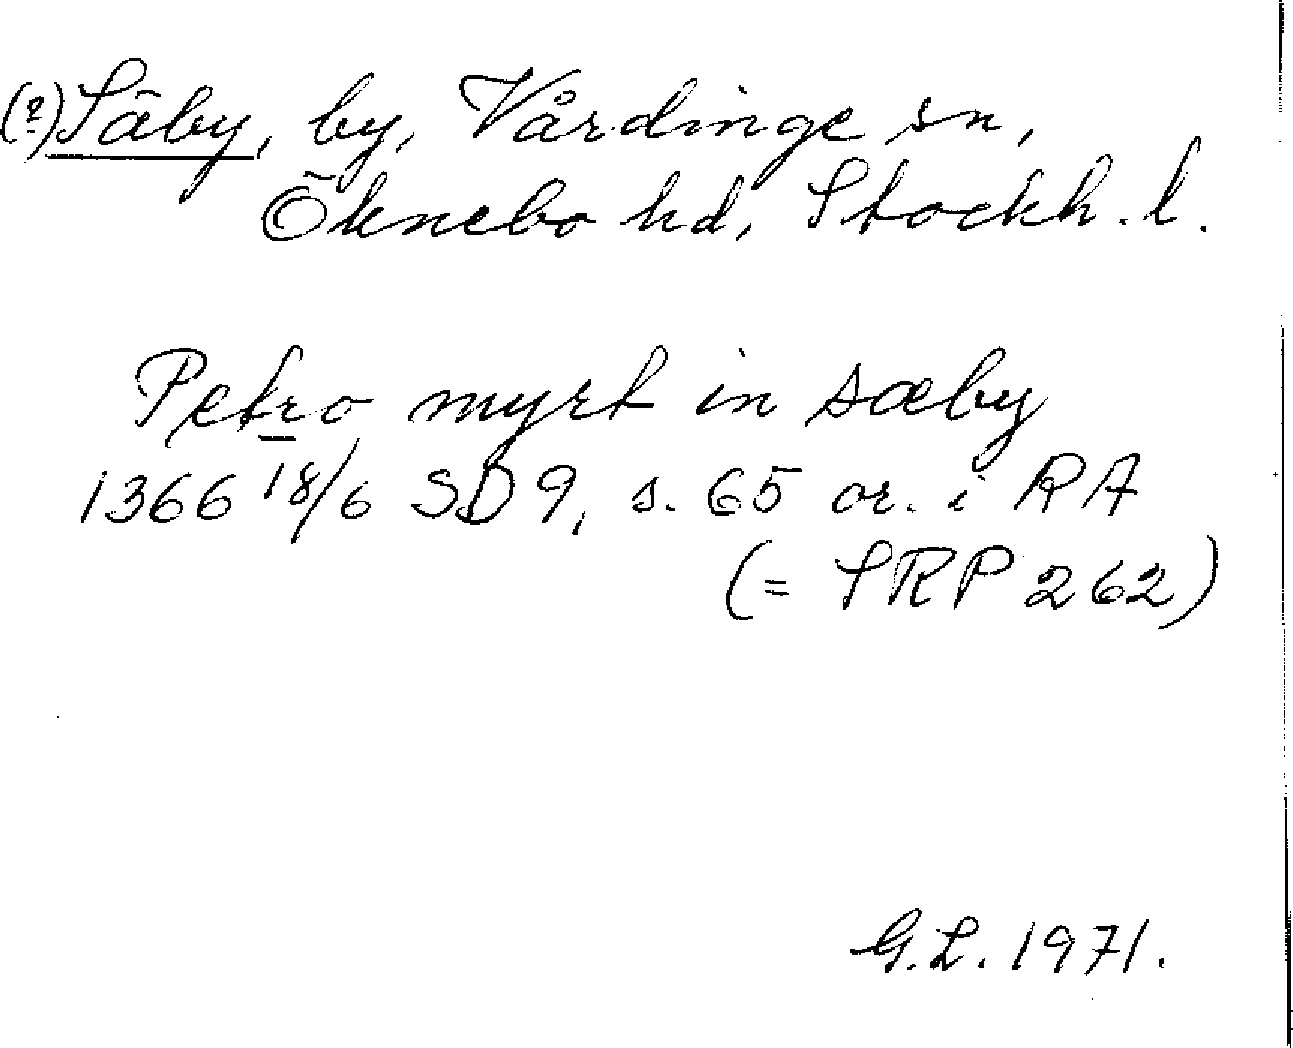 (?) Säby, by, Vårdinge sn,
Öknebo hd, Stockh. l.
Petro myrk in sæby
1366 18/6 SD 9, s. 65 or. i RA
(= SRP 262)
G.L. 1971.